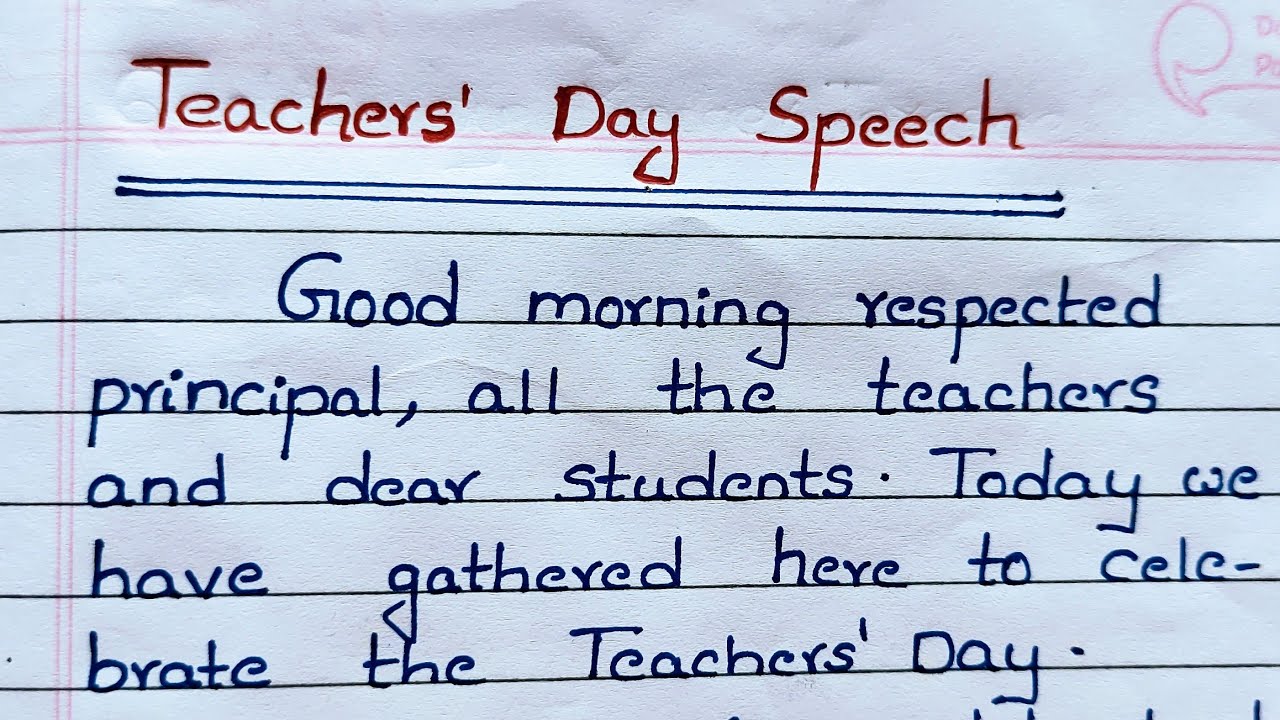 Teachers' Day Speech
Good morning respected
principal, all the teachers
and dear students. Today we
have gathered here to cele-
brate the Teachers' Day.